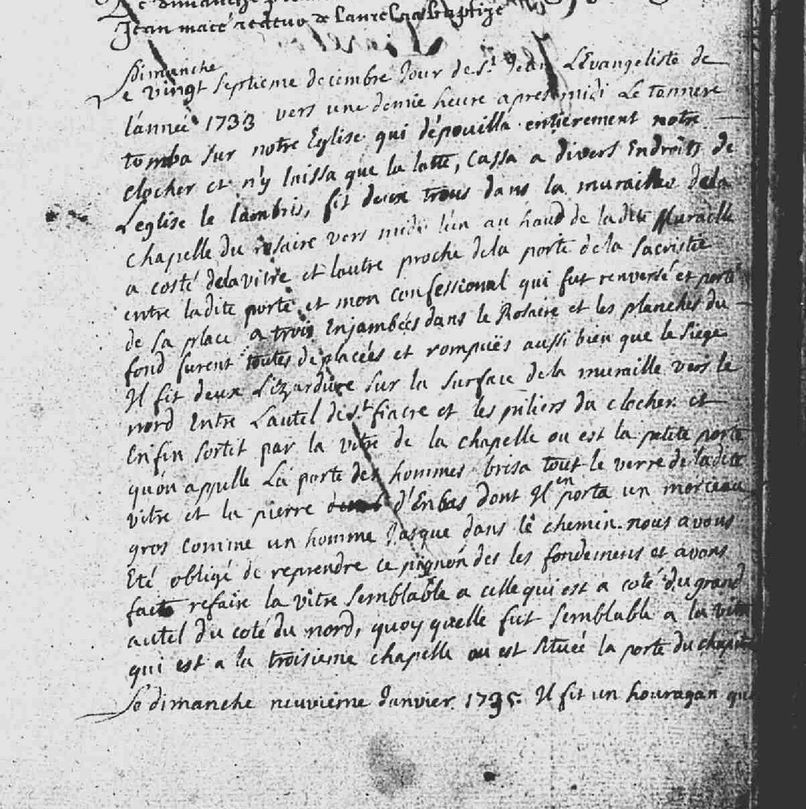 Jean macé recteur de Lanrelas baptizé
Dimanche
Le vingt septieme decembre Jour de st Jean L'Evangeliste de
lannée 1733 vers une demie heure apres midi Le tonnere
tomba sur notre Eglise qui dépouilla entierement notre
clocher et n'y laissa que la latte, cassa a divers Endroits de
Leglise le lambris, fit deux trous dans la muraille dela
chapelle du rosaire vers midi lun au haud de la dite Muraille
a costé delavitre et lautre proche dela porte dela sacristie
entre la dite porte et mon confessional qui fut renversé et porté
de sa place a trois Enjambées dans le Rosaire et les planches du
fond furent toutes deplacées et rompuës aussi bien que le siege
Il fit deux Lizardure sur la surface dela muraille vers le
nord Entre Lautel de st fiacre et les piliers du clocher et
Enfin sortit par la vitre de la chapelle ou est la petite porte
quon appelle La porte des hommes brisa tout le verre de ladite
vitre et la pierre d'Enbas dont Il en porta un morceau
gros comme un homme Jusque dans le chemin. nous avons
Eté obligé de reprendre ce pignon des les fondemens et avons
fait refaire la vitre semblable a celle qui est a coté du grand
autel du coté du nord, quoy quelle fut semblable a la vitre
qui est a la troisieme chapelle ou est située la porte du
Le dimanche neuvieme Janvier 1735 Il fit un houragan que